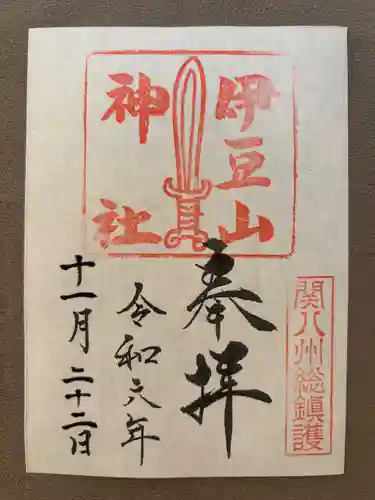 伊豆山
神社
関八州総鎮護
奉拝
令和六年
十一月二十二日